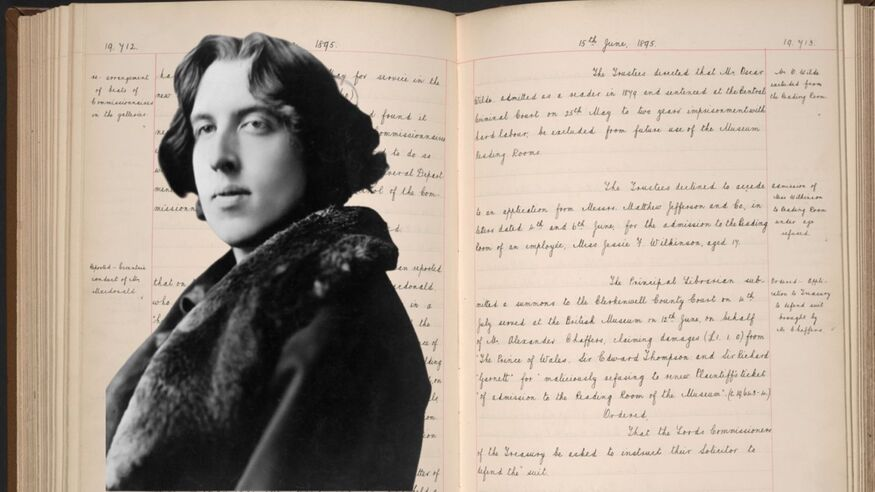 19,712.
1895.
re-arrangement
of beats of
Commissionaires
on the galleries
for service in the
new
found it
ommissionaires
d to do se
eral Depart
ment
ol of the Com-
missionn
Reported - Executive
conduct of Mr
Macdonald.
an reported
that on
cdonald
who
in a
the
ce of
on
of
15th June, 1895.
19,713.
The Trustees directed that Mr. Oscar
Wilde, admitted as a reader in 1879 and sentenced at the Central
Criminal Court on 25th May to two years imprisonment with
hard labour, be excluded from future use of the Museum
Reading Rooms.
Mr O. Wilde
excluded from
the Reading Room.
The Trustees declined to accede
to an application from Messrs. Matthew Jefferson and Co, in
letters dated 4th and 6th June, for the admission to the Reading
Room of an employée, Miss Jessie F. Wilkinson, aged 19.
Admission of
Miss Wilkinson
to Reading Room
under age
refused.
The Principal Librarian sub-
mitted a summons to the Clerkenwell County Court on 4th
July served at the British Museum on 12th June, on behalf
of Mr. Alexander Chaffers, claiming damages (£1. 1. 0) from
"The Prince of Wales, Sir Edward Thompson and Sir Richard
"Garnett" for "maliciously refusing to renew Plaintiff's ticket
"of admission to the Reading Room of the Museum".
Ordered - Appli-
cation to Treasury
to defend suit
brought by
Mr Chaffers
Ordered,
That the Lords Commissioners
of the Treasury be asked to instruct their Solicitor to
defend the suit.